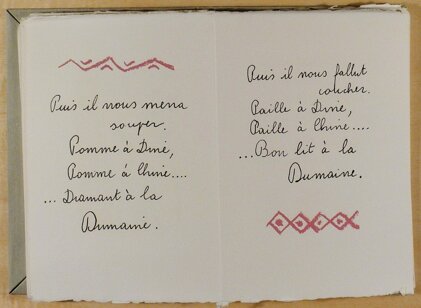 Puis il nous mena
souper.
Pomme à Dine,
Pomme à Chine....
... Diamant à la
Dumaine.
Puis il nous fallut
coucher.
Paille à Dine,
Paille à Chine....
... Bon lit à la
Dumaine.